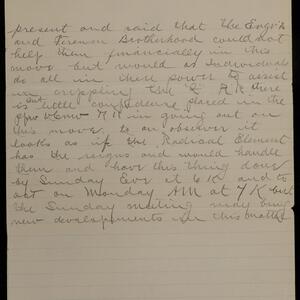 present and said that the Engrs
and Fireman Brotherhood could not
help them financially in this
move but would as Individuals
do all in their power to assist
in crippling the R R there
is but little confidence placed in the
move R R in going out on
this move to an observer it
looks as if the Radical Element
has the reigns and would handle
them and have this thing done
by Sunday Eve at 6 K and to
act on Monday AM at 7 K but
the Sunday meeting may bring
new developments in this matter